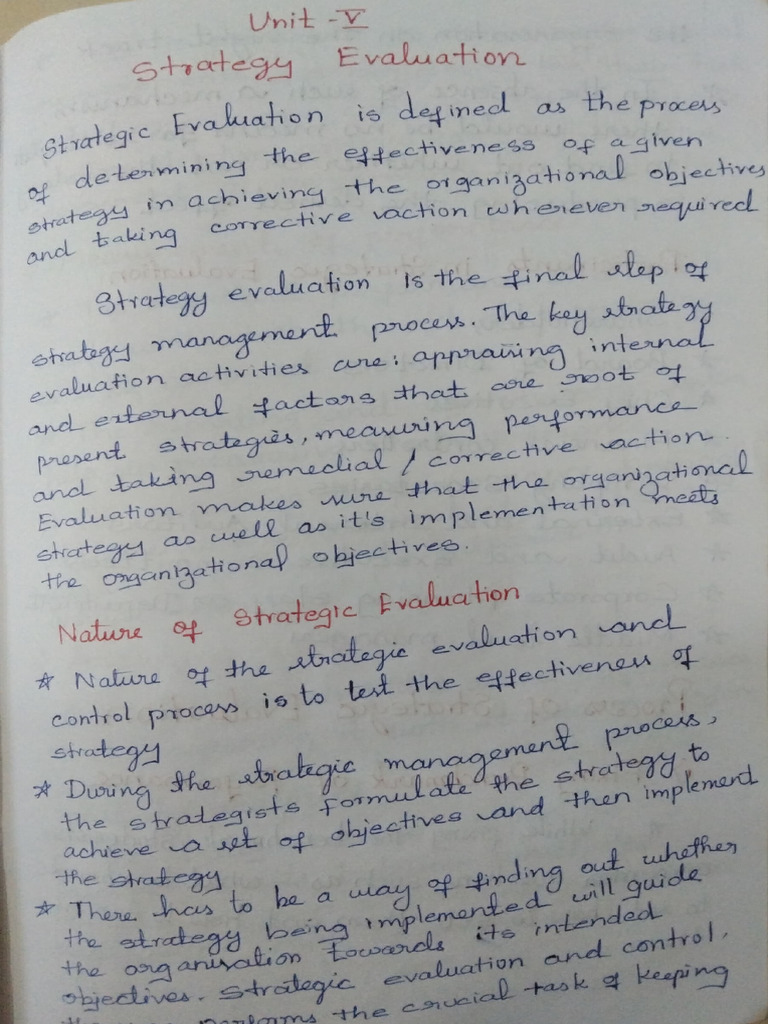 Unit - V
Strategy Evaluation
Strategic Evaluation is defined as the process
of determining the effectiveness of a given
strategy in achieving the organizational objectives
and taking corrective action wherever required
Strategy evaluation is the final step of
strategy management process. The key strategy
evaluation activities are: appraising internal
and external factors that are root of
present strategies, measuring performance
and taking remedial / corrective action.
Evaluation makes sure that the organizational
strategy as well as it's implementation meets
the organizational objectives.
Nature of Strategic Evaluation
* Nature of the strategic evaluation and
control process is to test the effectiveness of
strategy
* During the strategic management process,
the strategists formulate the strategy to
achieve a set of objectives and then implement
the strategy
* There has to be a way of finding out whether
the strategy being implemented will guide
the organisation towards its intended
objectives. Strategic evaluation and control,
performs the crucial task of keeping